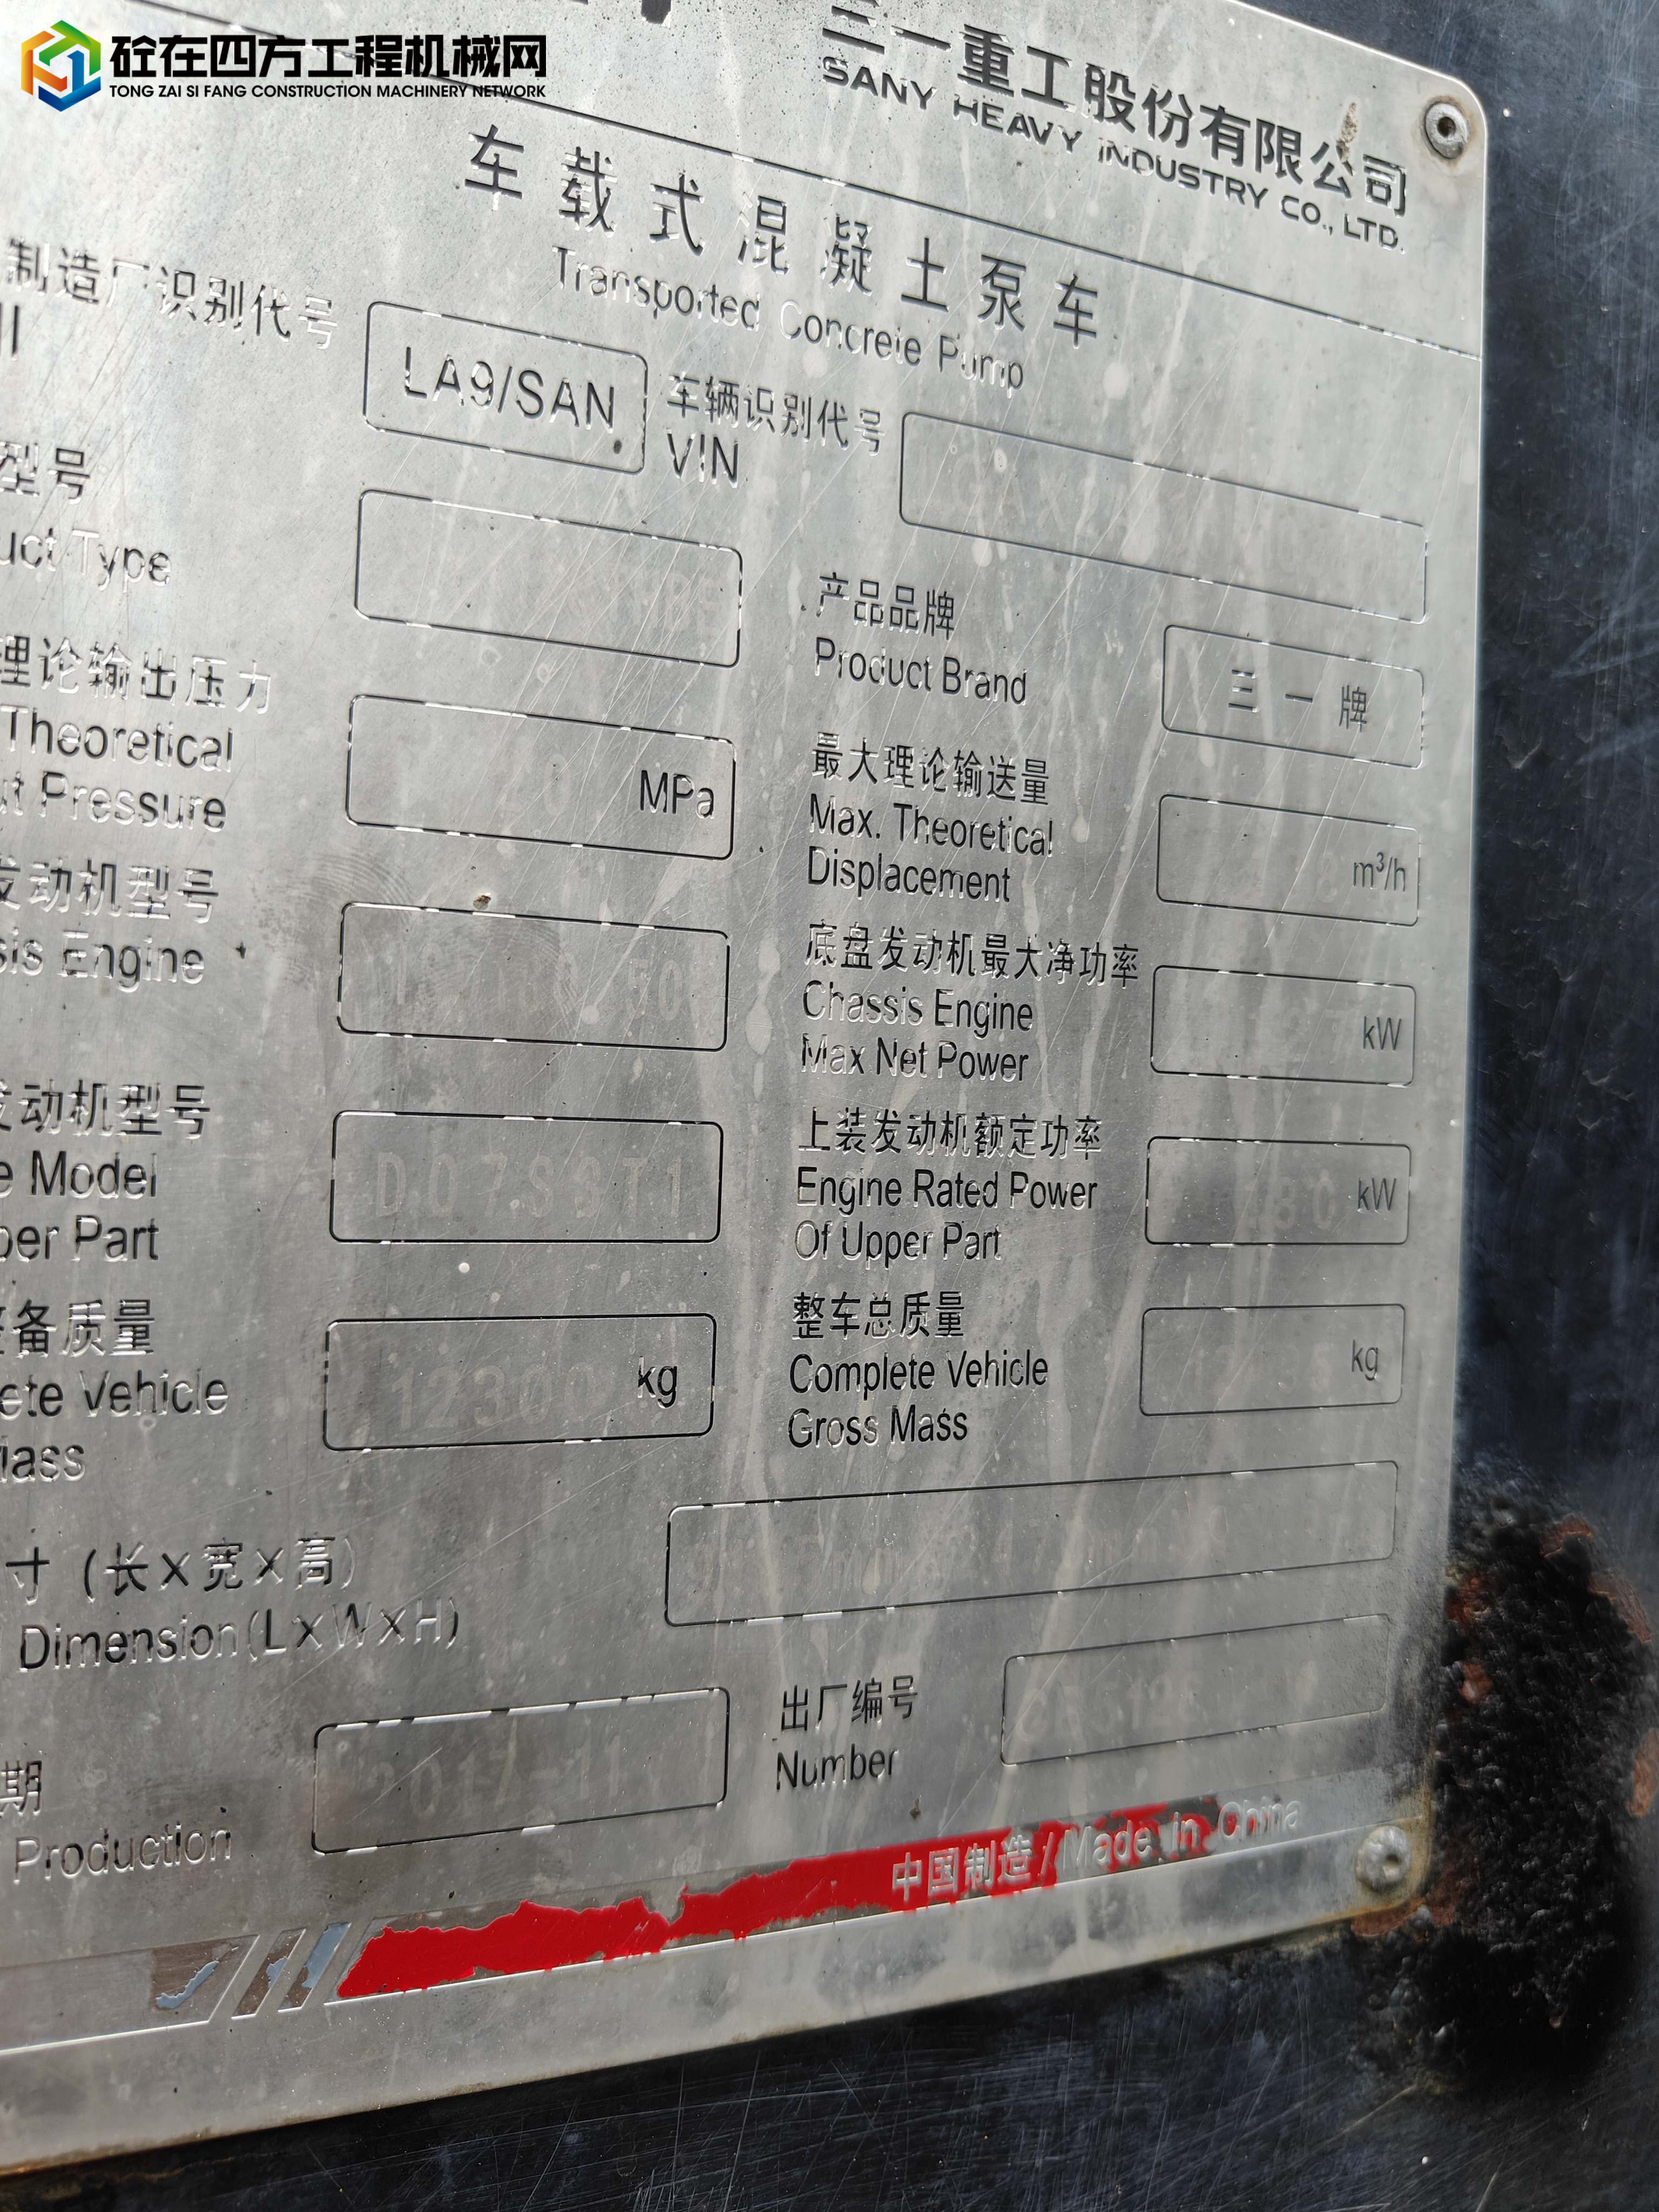 砼在四方工程机械网
TONG ZAI SI FANG CONSTRUCTION MACHINERY NETWORK
三一重工股份有限公司
SANY HEAVY INDUSTRY CO., LTD.
车载式混凝土泵车
Transported Concrete Pump
制造厂识别代号
LA9/SAN
车辆识别代号
VIN
型号
uct Type
产品品牌
Product Brand
三一牌
理论输出压力
Theoretical
ut Pressure
MPa
最大理论输送量
Max. Theoretical
Displacement
m³/h
发动机型号
sis Engine
底盘发动机最大净功率
Chassis Engine
Max Net Power
kW
发动机型号
e Model
per Part
D07S3T1
上装发动机额定功率
Engine Rated Power
Of Upper Part
kW
备质量
ete Vehicle
Mass
12300 kg
整车总质量
Complete Vehicle
Gross Mass
kg
寸 (长×宽×高)
Dimension(L×W×H)
期
Production
2017-11
出厂编号
Number
中国制造 / Made in China